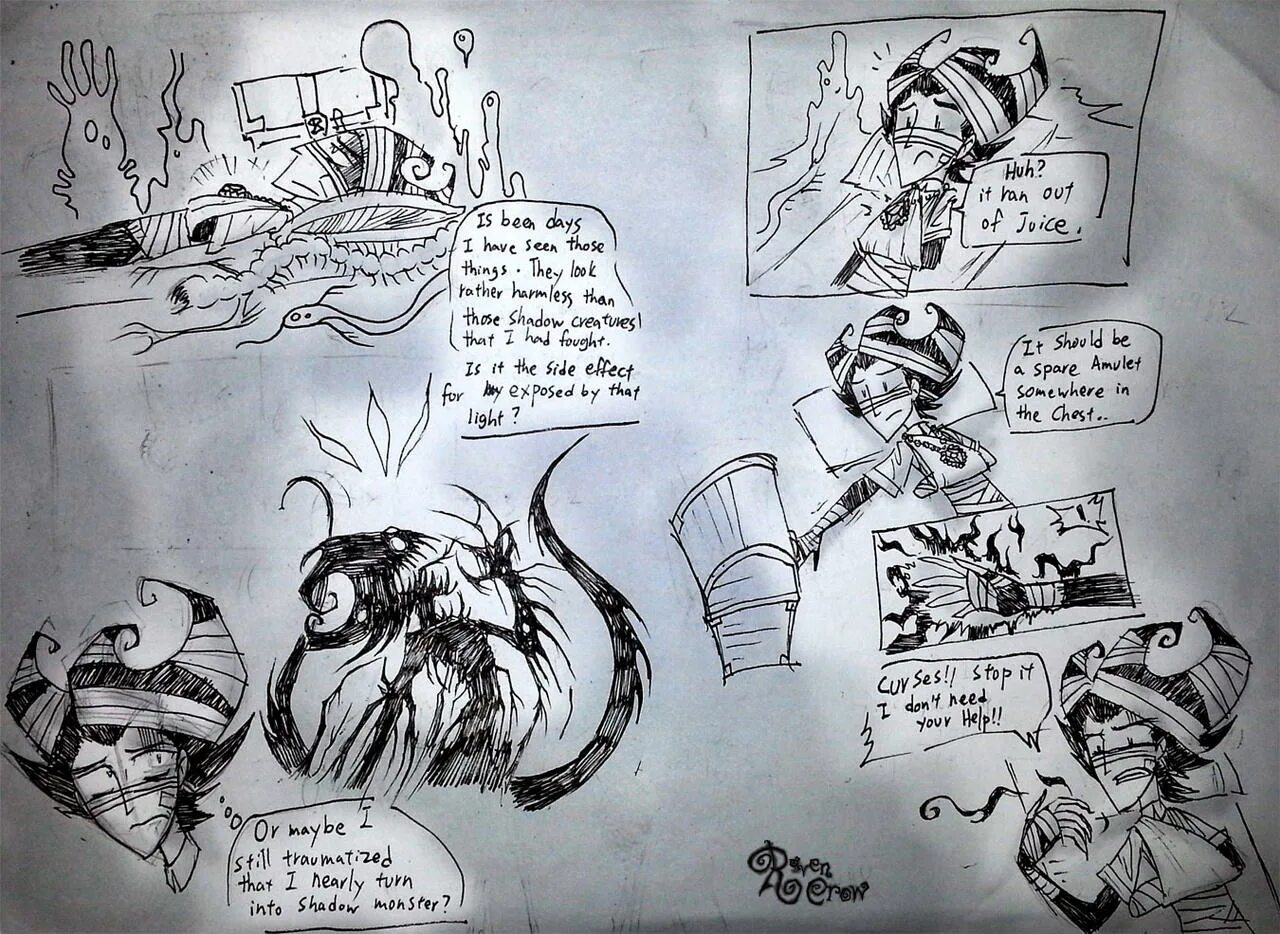 Is been days
I have seen those
things. They look
rather harmless than
those shadow creatures
that I had fought.
Is it the side effect
for exposed by that
light?
Or maybe I
still traumatized
that I nearly turn
into shadow monster?
Huh?
it ran out
of Juice.
It should be
a spare Amulet
somewhere in
the Chest..
Curses!! Stop it
I don't need
your Help!!
Raven
Crow